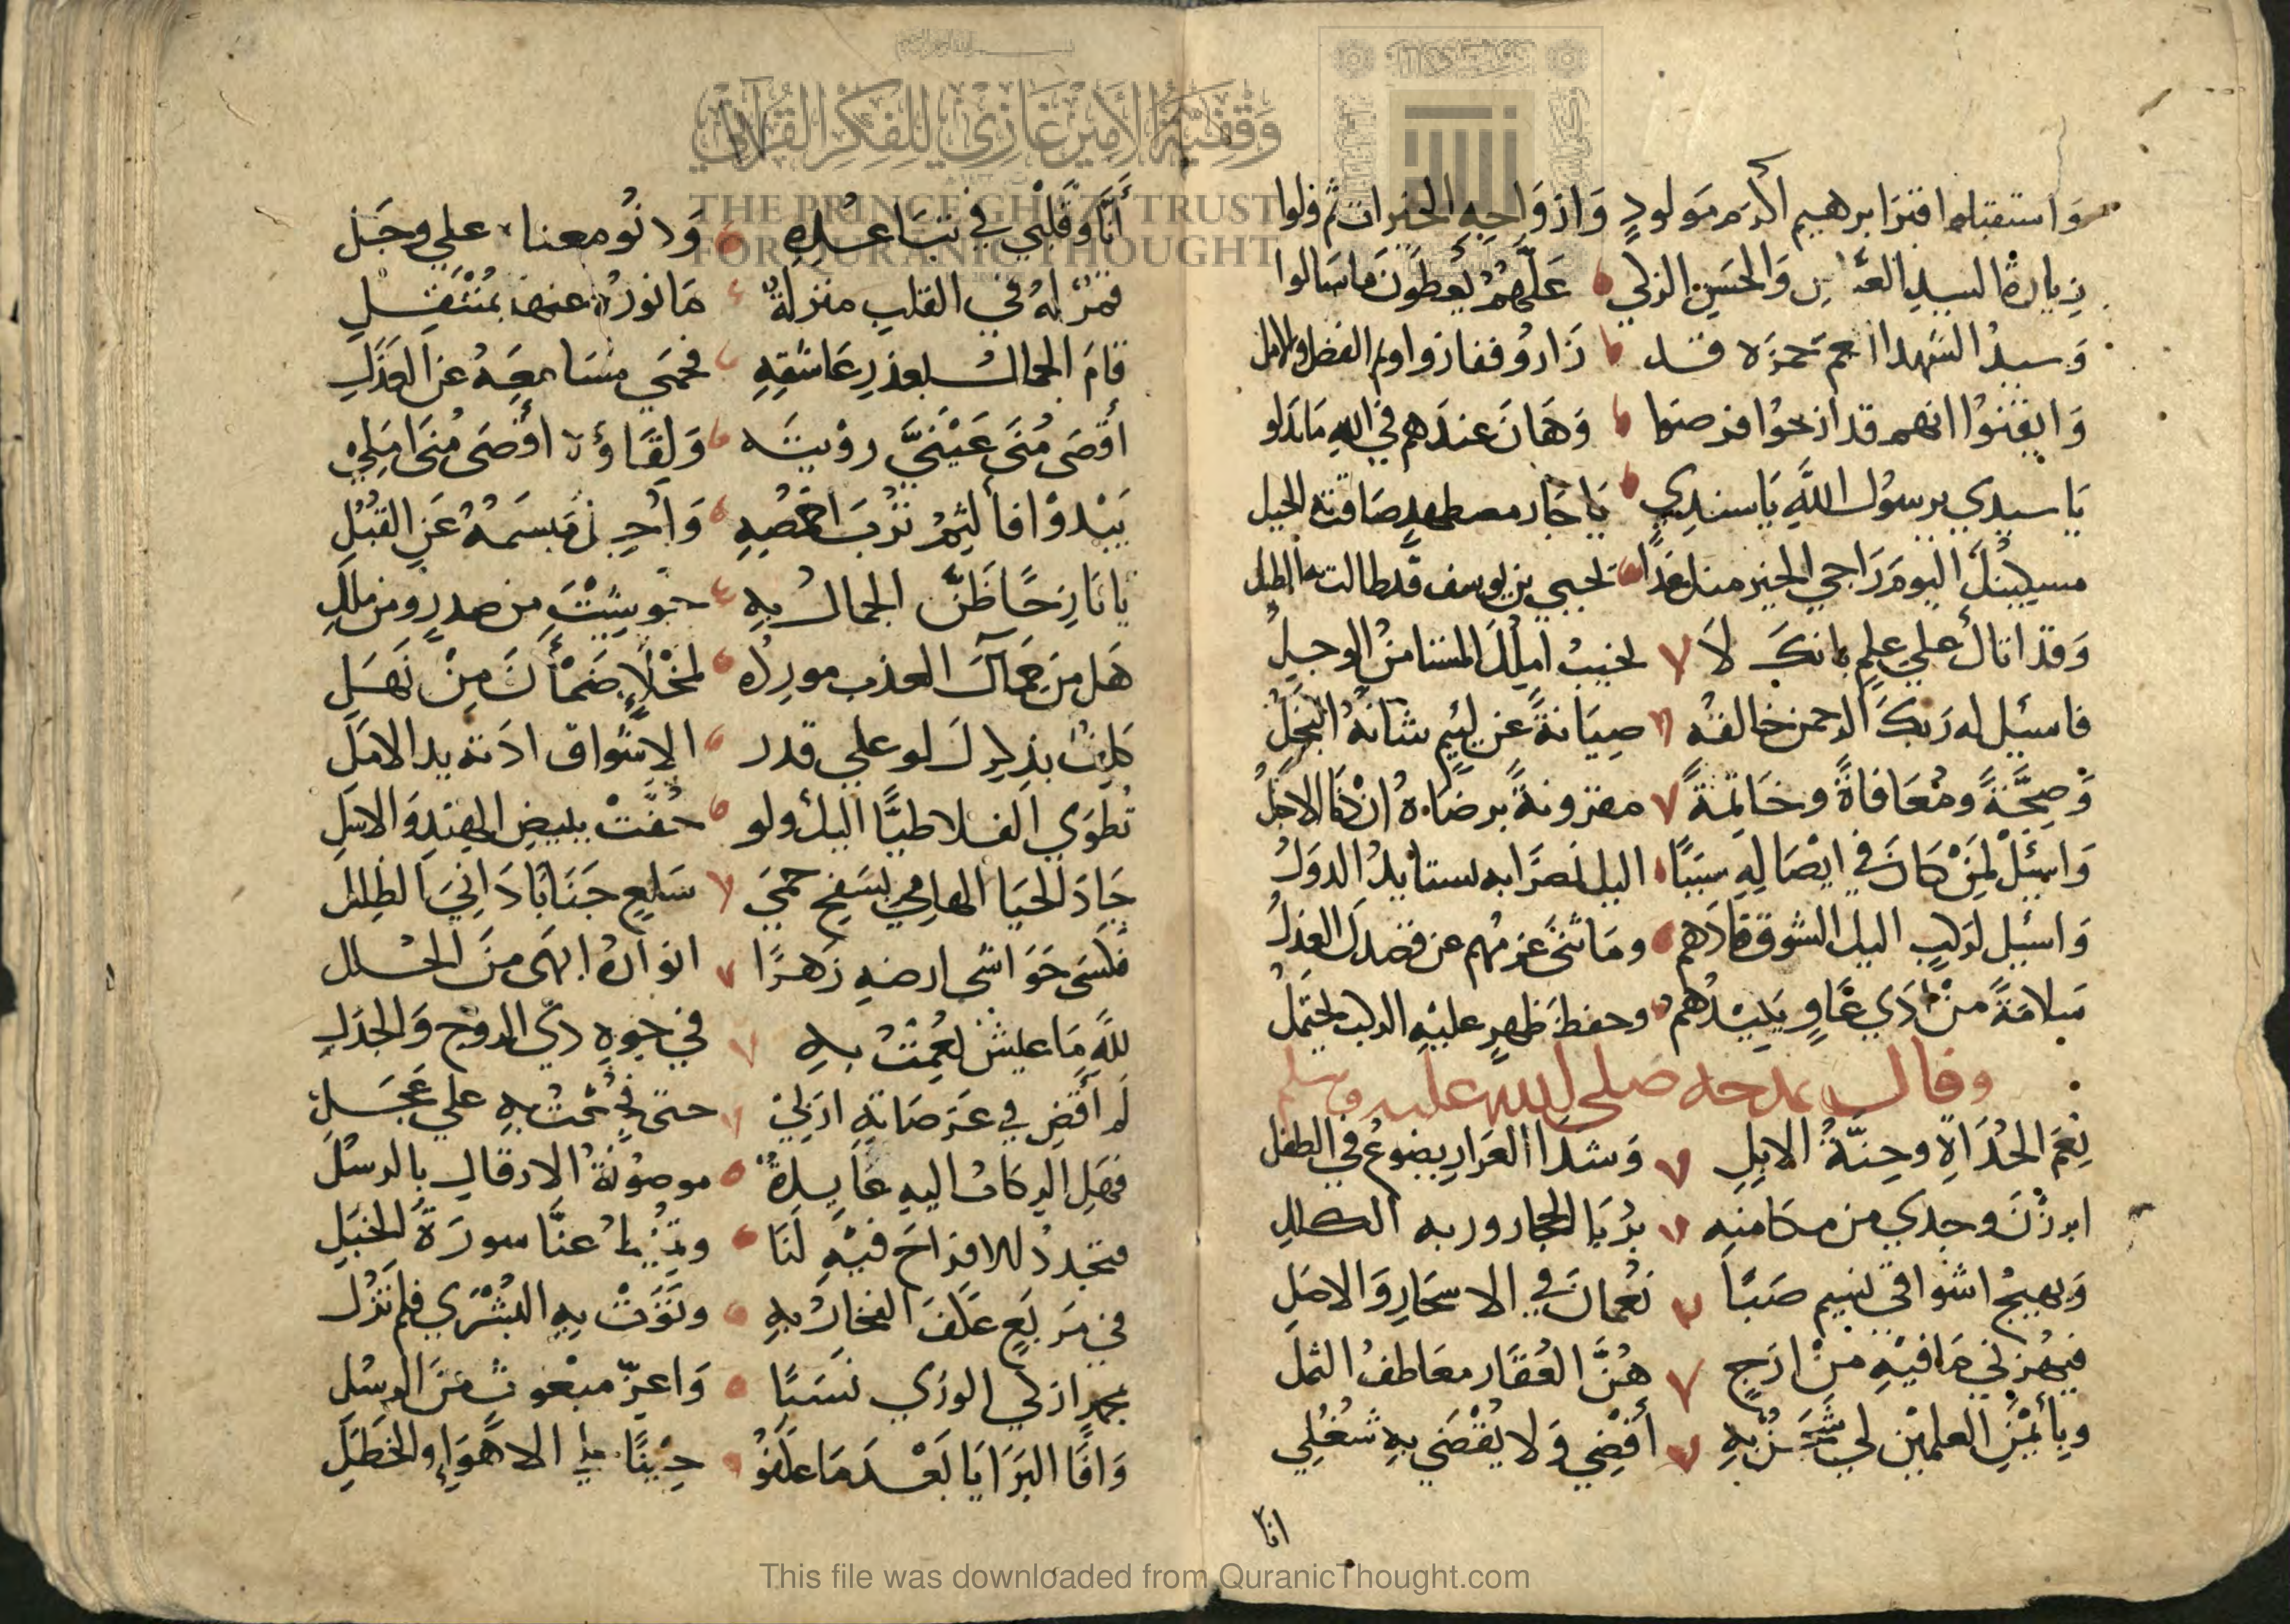 واستقبلوا قبر ابرهيم اكرم مولود وازواجه الخيرات ثم ولوا
زيارة السيد العباس والحسن الزكي علهم يعطون ما سالوا
وسيد الشهدا العم حمزه قد زاروه ففازوا ولم الفضل والامل
وايقنوا انهم قد ازخوا فرصا وهان عندهم في الله ما بذلو
يا سيدي يرسول الله يا سندي يا جار مضطهد ضاقت به الحيل
مسيكينك اليوم راجي الخير منك غدا يحيي بن يوسف قد طالت به الطيل
وقد اتاك علي علم بانك لا تخيب امالك المستامن الوجل
فاسئل له ربك الرحمن خالقه صيانة عن لئيم شانه البخل
وصحة ومعافاة وخاتمة مقرونة برضاه ان دنا الاجل
واسئل لمن كان في ايصاله سببا اليك نصرا به تستايد الدول
واسئل لركب اليك الشوق قادهم وما ثنى عزمهم عن قصدك العذل
سلامة من اذي عاو يكيدهم وحفظ ظهر عليه الركب يحتمل
وقال يمدحه صلي الله عليه وسلم
نغم الحداة وحنة الابل وشذا العرار يضوع في الطفل
ابرزن وجدي من مكامنه بربا الحجاز وربه الكلل
ويهيج اشواقي نسيم صبا نعمان في الاسحار والاصل
فيهزني ما فيه من ارج هز العقار معاطف الثمل
وبأيمن العلمين لي شجن به أقضي ولا يقضي به شغلي
٢٠١
أنا وقلبي في تباعده ودنو معنا علي وجل
قمر له في القلب منزلة ما نوره عنها بمنتقل
قام الجمال بعذر عاشقه فحمي مسامعه عن العذل
أقصى منى عيني رؤيته ولقاؤه اقصى منى املي
يبدو فألثم ترب اخمصه وأجل مبسمه عن القبل
يا نازحا ظن الجمال به حوشيت من صد ومن ملل
هل من جمالك العذب مورده لمخلإ ضمأن من نهل
كلفت بذكرك لو علي قدر الاشواق ادنته يد الامل
تطوي الفلا طيا اليك ولو حفت ببيض الهند والاسل
جاد الحيا الهامي بسفح حمى سلع جنابا داني الظلل
فكسى حواشى ارضه زهرا انواره ابهى من الحلل
لله ما عيش نعمت به في جوه ذي الروح والجذل
لم أقض في عرصاته اربي حتى فجعت به علي عجل
فهل الركاب اليه عايدة موصولة الارقال بالرسل
فتجدد للافراح فيه لنا ويزيل عنا سورة الخبل
في مربع علف الفخار به وثوت به البشرى فلم تزل
بمحمد ازكي الوري نسبا واعز مبعوث من الرسل
وافا البرايا بعدما عكفو حينا علي الاهواء والخطل
وقفية الأمير غازي للفكر القرآني
THE PRINCE GHAZI TRUST
FOR QURANIC THOUGHT
This file was downloaded from QuranicThought.com